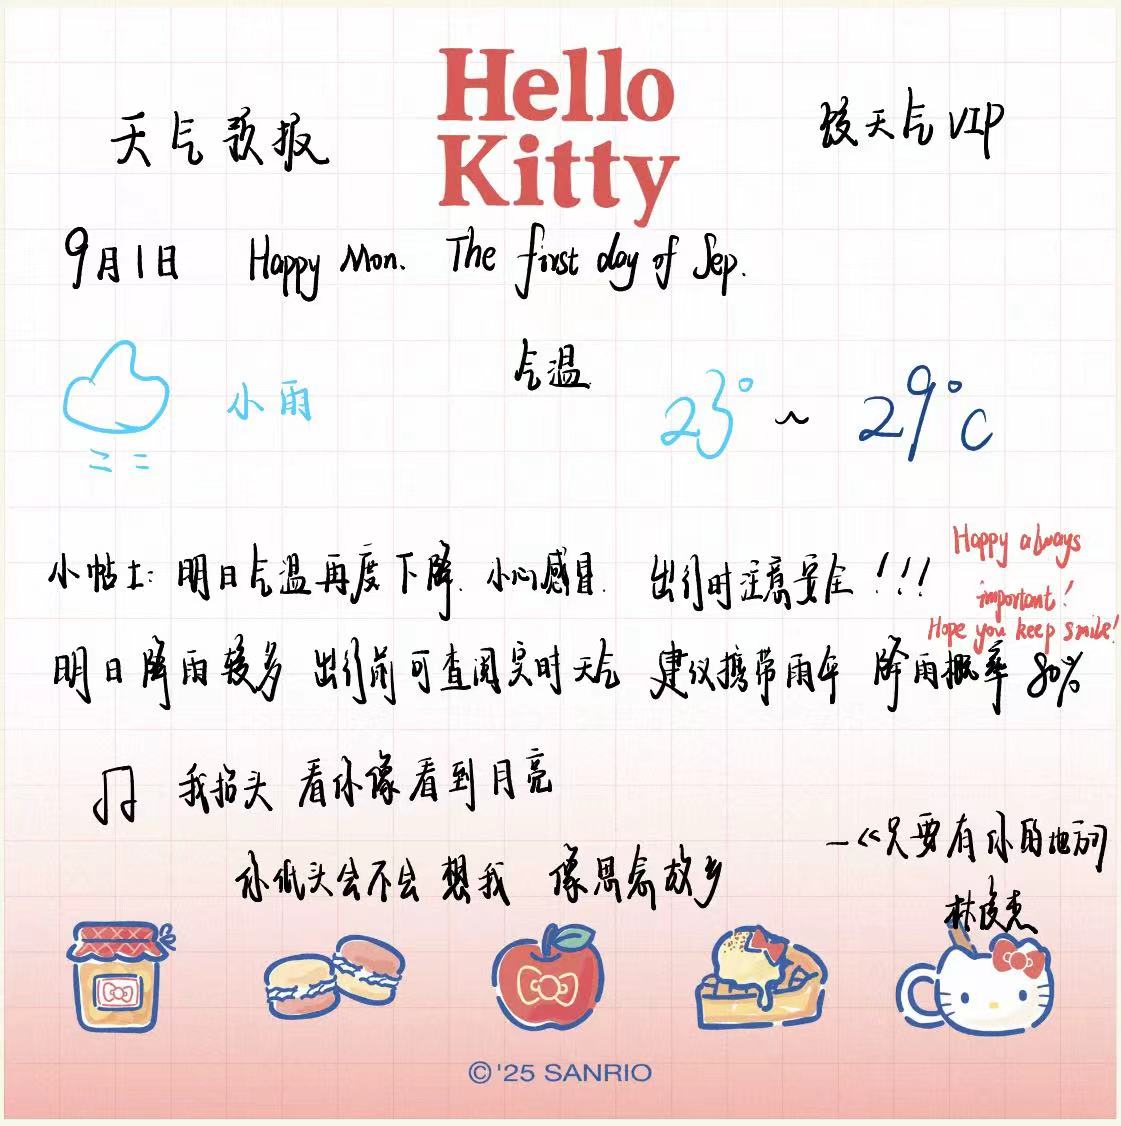 Hello
Kitty
天气预报
天气VIP
9月1日 Happy Mon. The first day of Sep.
气温
小雨 23° ~ 29°C
小帖士: 明日气温再度下降. 小心感冒. 出行时注意安全!!!
Happy always
important!
Hope you keep smile!
明日降雨较多 出行前可查阅实时天气 建议携带雨伞 降雨概率80%
我抬头 看你像看到月亮
你低头会不会想我 像思念故乡
—《只要有你的地方》
林俊杰
©'25 SANRIO